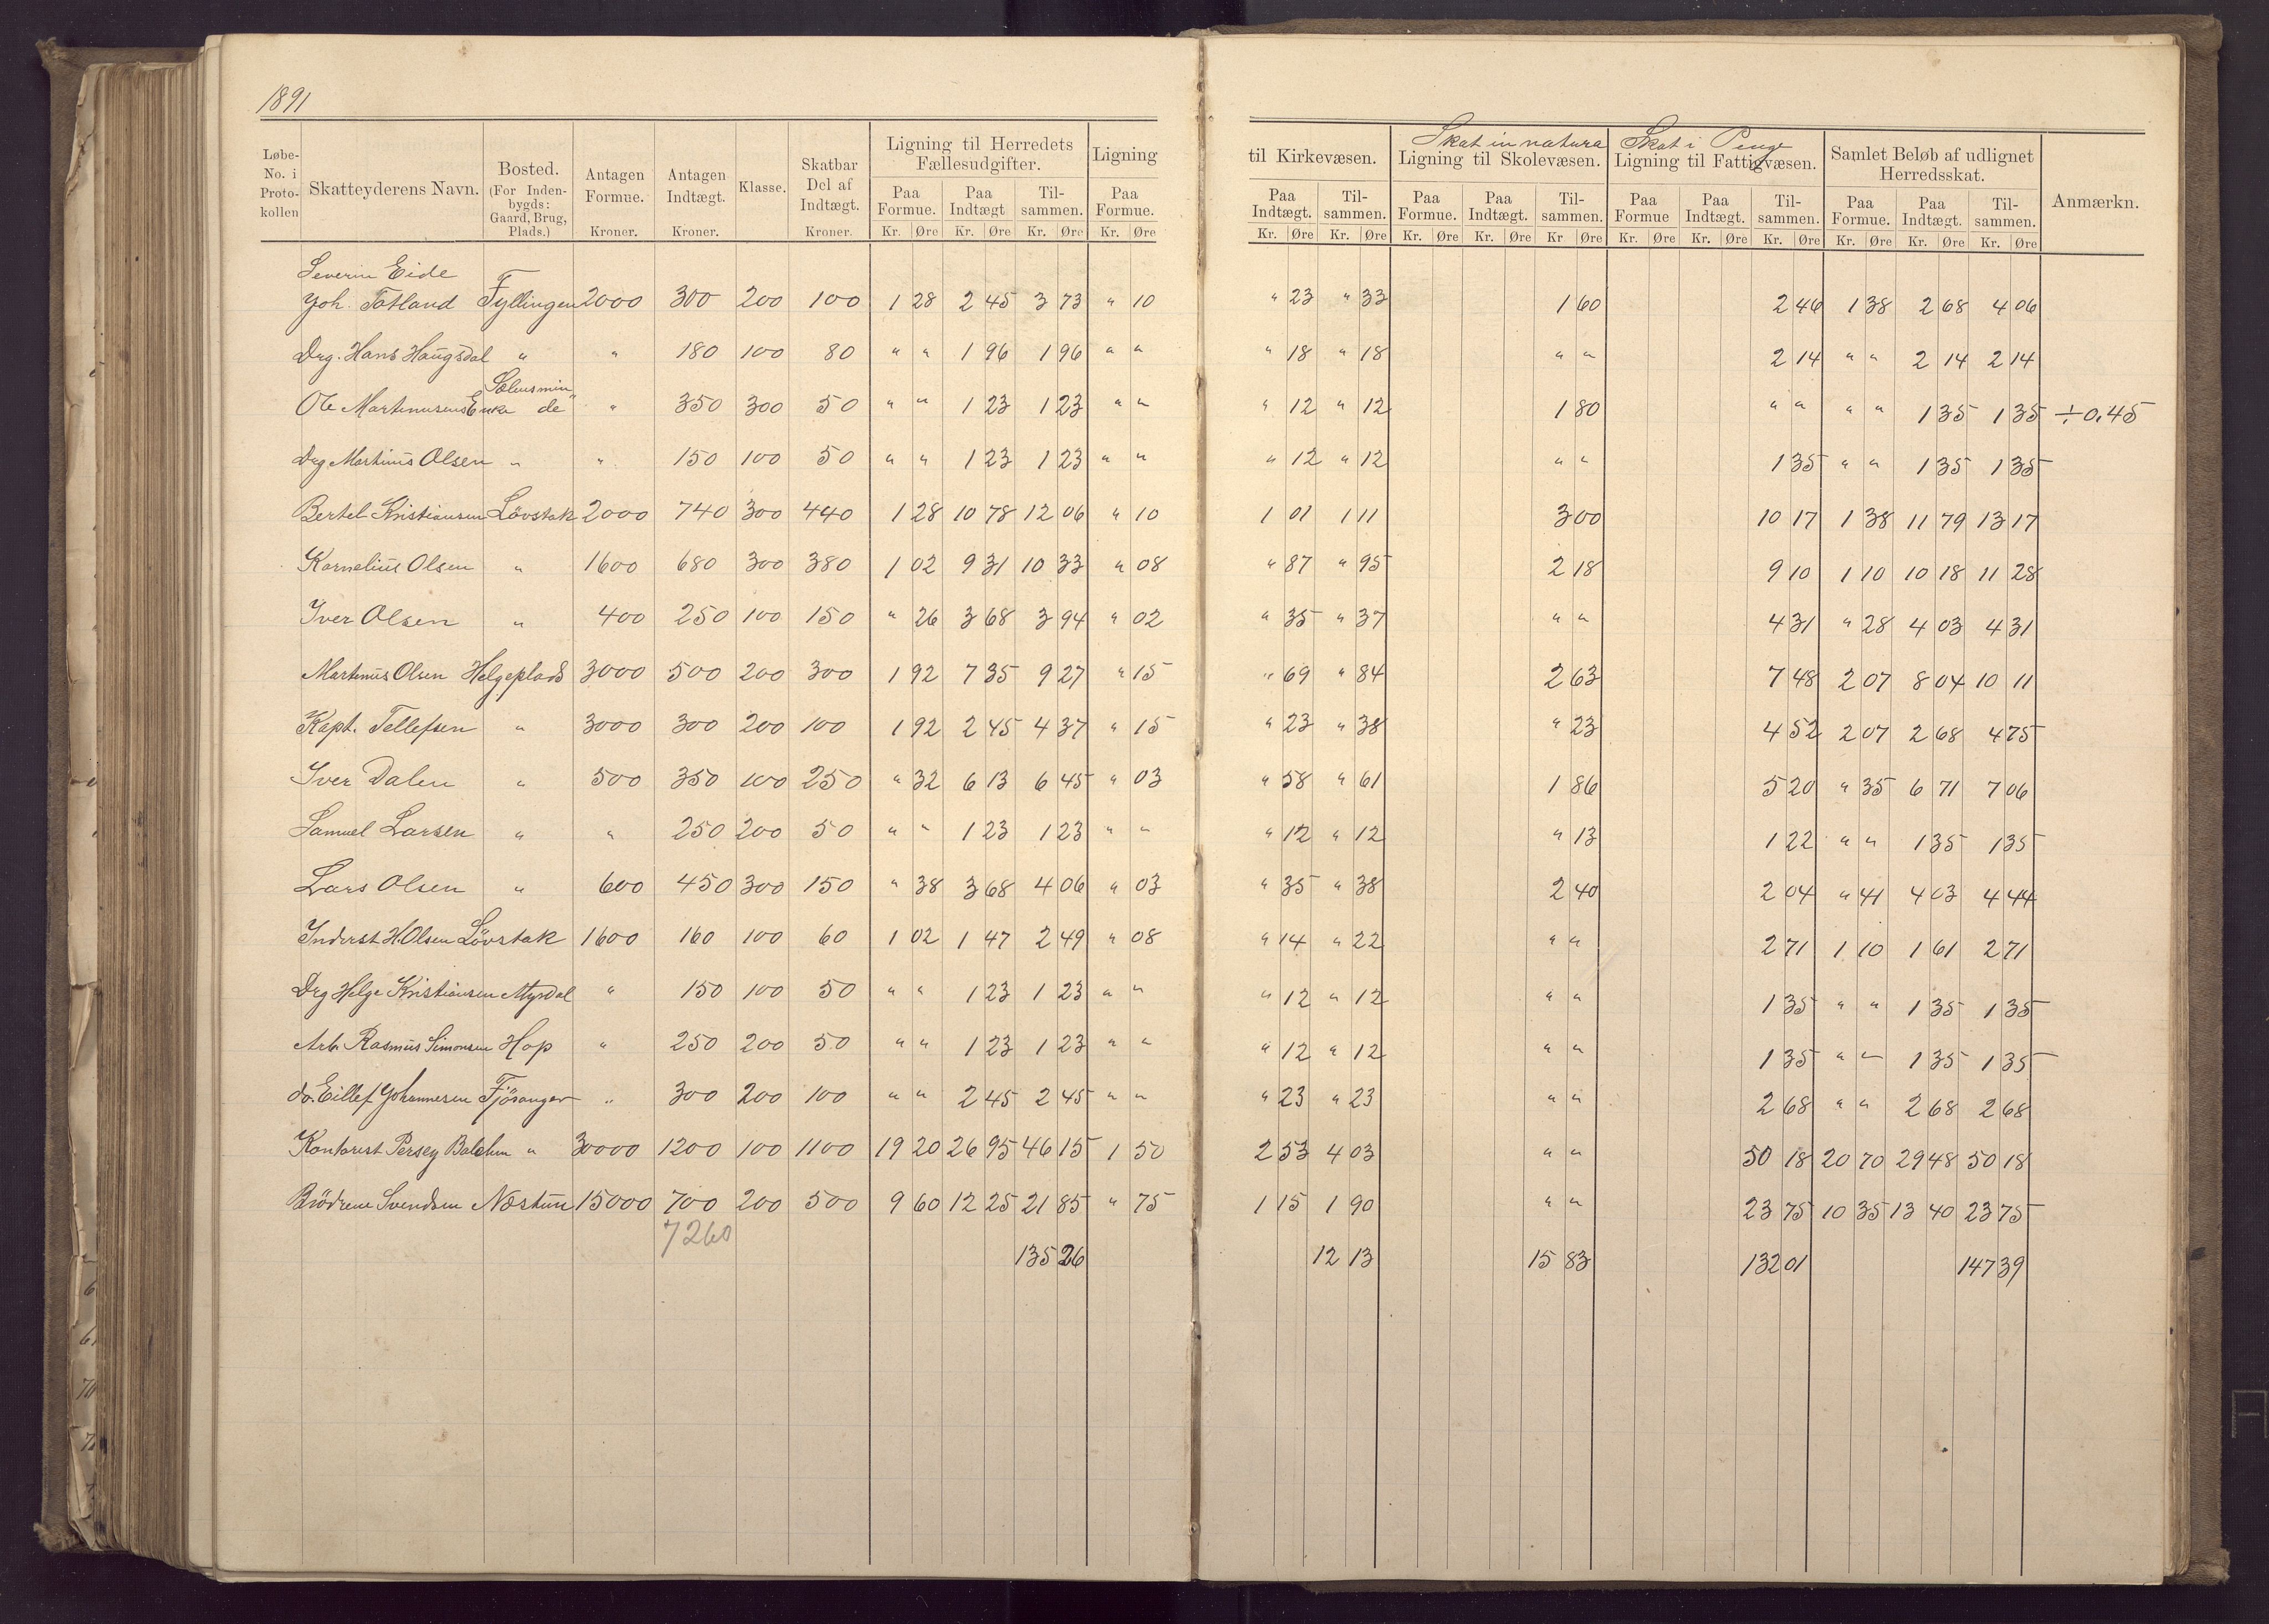 1891
Løbe-No. i Proto-kollen | Skatteyderens Navn. | Bosted. (For Inden-bygds: Gaard, Brug, Plads.) | Antagen Formue. Kroner. | Antagen Indtægt. Kroner. | Klasse. | Skatbar Del af Indtægt. Kroner. | Ligning til Herredets Fællesudgifter. Paa Formue. Kr. Øre | Paa Indtægt Kr. Øre | Til-sammen. Kr. Øre | Ligning Paa Formue. Kr. Øre | til Kirkevæsen. Paa Indtægt. Kr. Øre | Til-sammen. Kr. Øre | Skat in natura Ligning til Skolevæsen. Paa Formue. Kr. Øre | Paa Indtægt. Kr. Øre | Til-sammen. Kr Øre | Skat i Penge Ligning til Fattigvæsen. Paa Formue Kr. Øre | Paa Indtægt. Kr. Øre | Til-sammen. Kr. Øre | Samlet Beløb af udlignet Herredsskat. Paa Formue. Kr. Øre | Paa Indtægt. Kr. Øre | Til-sammen. Kr. Øre | Anmærkn.
Severin Eide
Joh. Totland Fyllingen 2000 300 200 100 1 28 2 45 3 73 " 10 " 23 " 33 1 60 2 46 1 38 2 68 4 06
Drg. Hans Haugsdal " " 180 100 80 " " 1 96 1 96 " " " 18 " 18 " " 2 14 " " 2 14 2 14
Sælensmin
Ole Martinusens Enke de " 350 300 50 " " 1 23 1 23 " " " 12 " 12 1 80 " " " " 1 35 1 35 ÷0.45
Drg. Martinus Olsen " " 150 100 50 " " 1 23 1 23 " " " 12 " 12 " " 1 35 " " 1 35 1 35
Bertel Kristiansen Lövstak 2000 740 300 440 1 28 10 78 12 06 " 10 1 01 1 11 3 00 10 17 1 38 11 79 13 17
Kornelius Olsen " 1600 680 300 380 1 02 9 31 10 33 " 08 " 87 " 95 2 18 9 10 1 10 10 18 11 28
Iver Olsen " 400 250 100 150 " 26 3 68 3 94 " 02 " 35 " 37 " " 4 31 " 28 4 03 4 31
Martinus Olsen Helgeplads 3000 500 200 300 1 92 7 35 9 27 " 15 " 69 " 84 2 63 7 48 2 07 8 04 10 11
Kapt. Tellefsen " 3000 300 200 100 1 92 2 45 4 37 " 15 " 23 " 38 " 23 4 52 2 07 2 68 4 75
Iver Dalen " 500 350 100 250 " 32 6 13 6 45 " 03 " 58 " 61 1 86 5 20 " 35 6 71 7 06
Samuel Larsen " " 250 200 50 " " 1 23 1 23 " " " 12 " 12 " 13 1 22 " " 1 35 1 35
Lars Olsen " 600 450 300 150 " 38 3 68 4 06 " 03 " 35 " 38 2 40 2 04 " 41 4 03 4 44
Inderst H. Olsen Lövstak 1600 160 100 60 1 02 1 47 2 49 " 08 " 14 " 22 " " 2 71 1 10 1 61 2 71
Drg Helge Kristiansen Myrdal " 150 100 50 " " 1 23 1 23 " " " 12 " 12 " " 1 35 " " 1 35 1 35
Arb. Rasmus Simonsen Hop " 250 200 50 " " 1 23 1 23 " " " 12 " 12 " " 1 35 " " 1 35 1 35
do. Eillef Johannesen Fjösanger " 300 200 100 " " 2 45 2 45 " " " 23 " 23 " " 2 68 " " 2 68 2 68
Kontorist Persey " 30000 1200 100 1100 19 20 26 95 46 15 1 50 2 53 4 03 " " 50 18 20 70 29 48 50 18
Brödrene Svendsen Næstun 15000 700 200 500 9 60 12 25 21 85 " 75 1 15 1 90 " " 23 75 10 35 13 40 23 75
7260
135 26 12 13 15 83 132 01 147 39